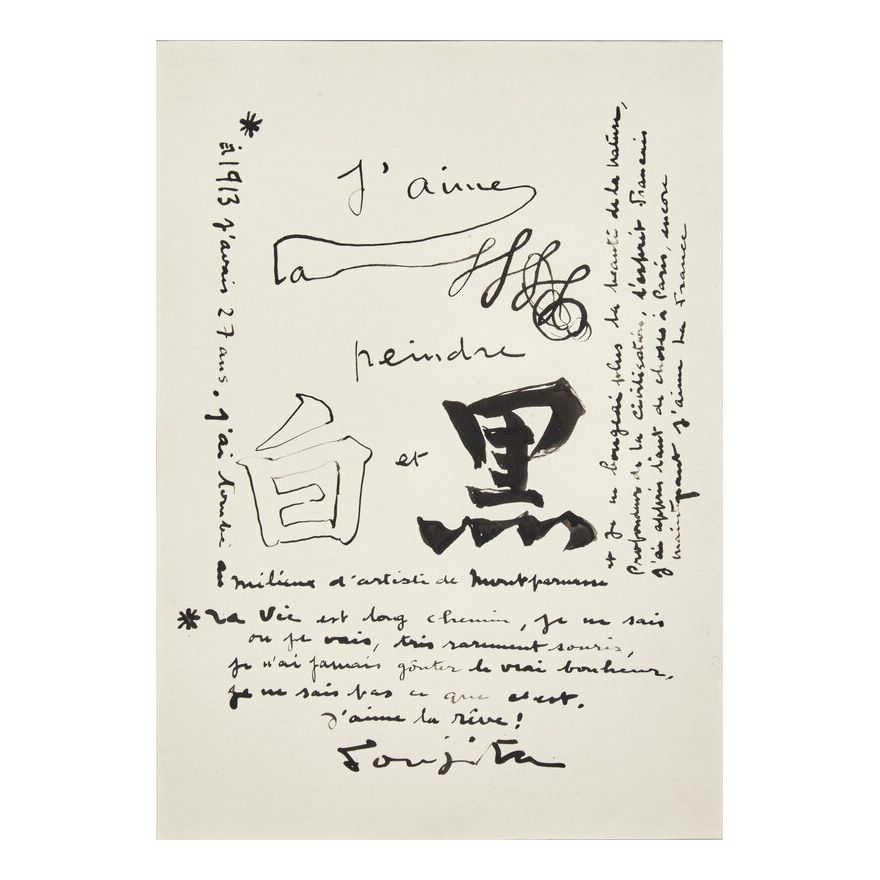 J'aime
la
peindre
白 et 黒
* à 1913 j'avais 27 ans. j'ai tombé au
milieue d'artiste de Montparnasse
et je ne bougeai plus la beauté de la nature,
Profondeur de la civilisation, l'esprit Francais
j'ai appris tant de choses à Paris, encore
maintenant j'aime la France
* La Vie est long chemin, je ne sais
ou je vais, très rarement souris,
je n'ai jamais goûter le vrai bonheur,
je ne sais pas ce que c'est.
j'aime la rêve!
Foujita